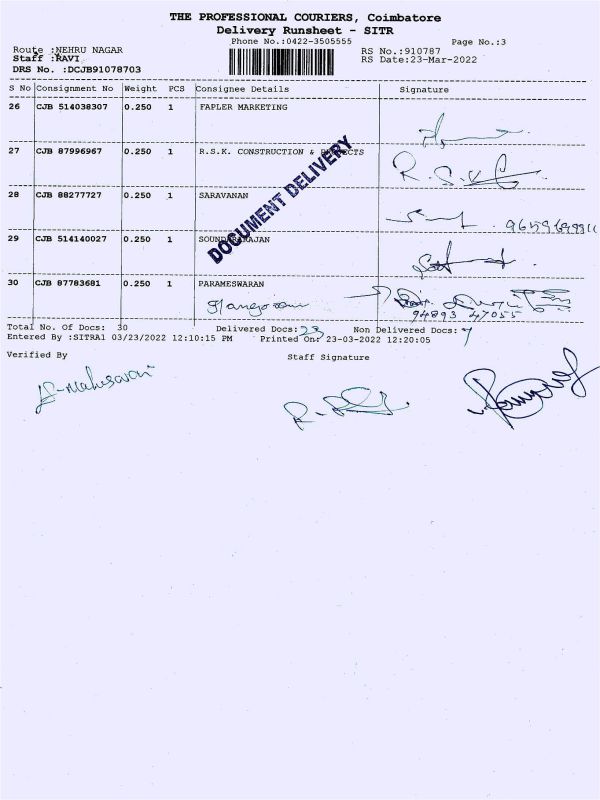 THE PROFESSIONAL COURIERS, Coimbatore
Delivery Runsheet - SITR
Phone No.:0422-3505555 Page No.:3
Route :NEHRU NAGAR RS No.:910787
Staff :RAVI RS Date:23-Mar-2022
DRS No. :DCJB91078703
S No Consignment No Weight PCS Consignee Details Signature
26 CJB 514038307 0.250 1 FAPLER MARKETING
27 CJB 87996967 0.250 1 R.S.K. CONSTRUCTION & R.S.K
DOCUMENT DELIVERY
28 CJB 88277727 0.250 1 SARAVANAN
29 CJB 514140027 0.250 1 SOUNDARARAJAN
30 CJB 87783681 0.250 1 PARAMESWARAN
94893 47055
Total No. Of Docs: 30 Delivered Docs: 23 Non Delivered Docs: 7
Entered By :SITRA1 03/23/2022 12:10:15 PM Printed On: 23-03-2022 12:20:05
Verified By Staff Signature